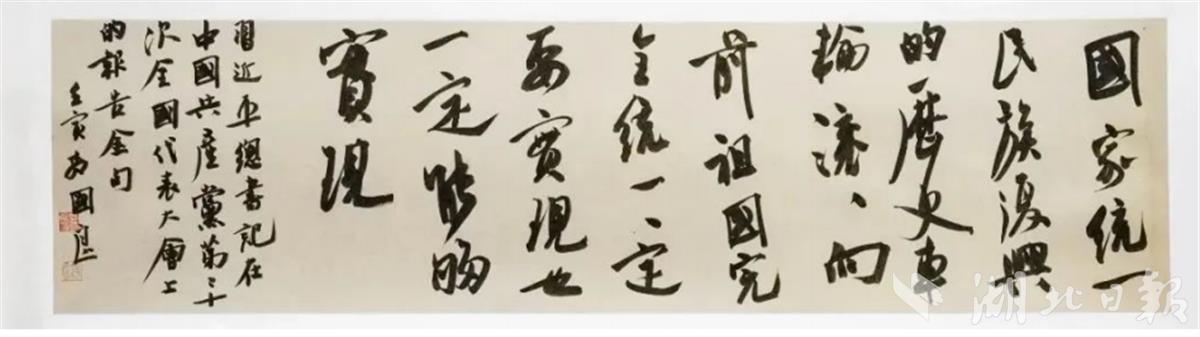 國家統一
民族復興
的歷史車
輪滾、向
前祖國完
全統一、定
要實現也
一定能夠
實現
習近平總書記在
中國共產黨第二十
次全國代表大會上
的報告金句
壬寅 國
湖北日報